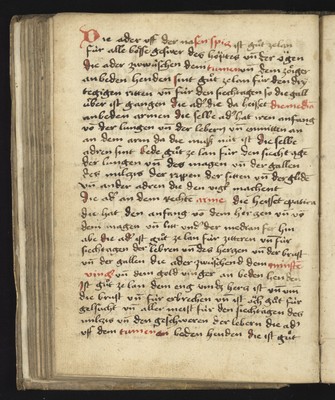 Die ader vff der nasen spitz ist gůt zelan
für alle bösse geswer des höptes vn̄ der ögen
die ader zwüschen dem tumen vn̄ dem zöiger
an beden henden sint gůt zelan für den dry
tegigen ritten vn̄ für den siechtagen so die gall
über ist gangen die ad' die da heisset die median
an beden armen die selbe ad' hat iren anfang
vō der lungen vn̄ der lebern vn̄ enmitten an
an dem arm da die müsß mit ist die selbe
adren sint bede gůt ze lan für den siechtagē
der lungen vn̄ des magen vn̄ der gallen
des miltzes der rippen der sitten vn̄ der glide
vn̄ ander adren die den siget machent
Die ad' an dem rechte arme die heisset epatica
die hat den anfang vō dem hertzen vn̄ vō
dem magen vn̄ litt vnd' der median hin
abe die ad' ist gůt ze lan für zittren vn̄ für
siechtagen der lebren vn̄ des hertzen vn̄ der brust
vn̄ der gallen die ader zwüschend dem minste
vinger vn̄ dem gold vinger an beden henden
ist gůt ze lan dem eng vmbs hertz ist vn̄ vm
die brust vn̄ für erbrechen vn̄ ist och gůt für
gelsucht vn̄ aller meist für den siechtagen des
miltzes vn̄ den geschweren der lebern die ad'
vff dem tumen an beden henden die ist gůt